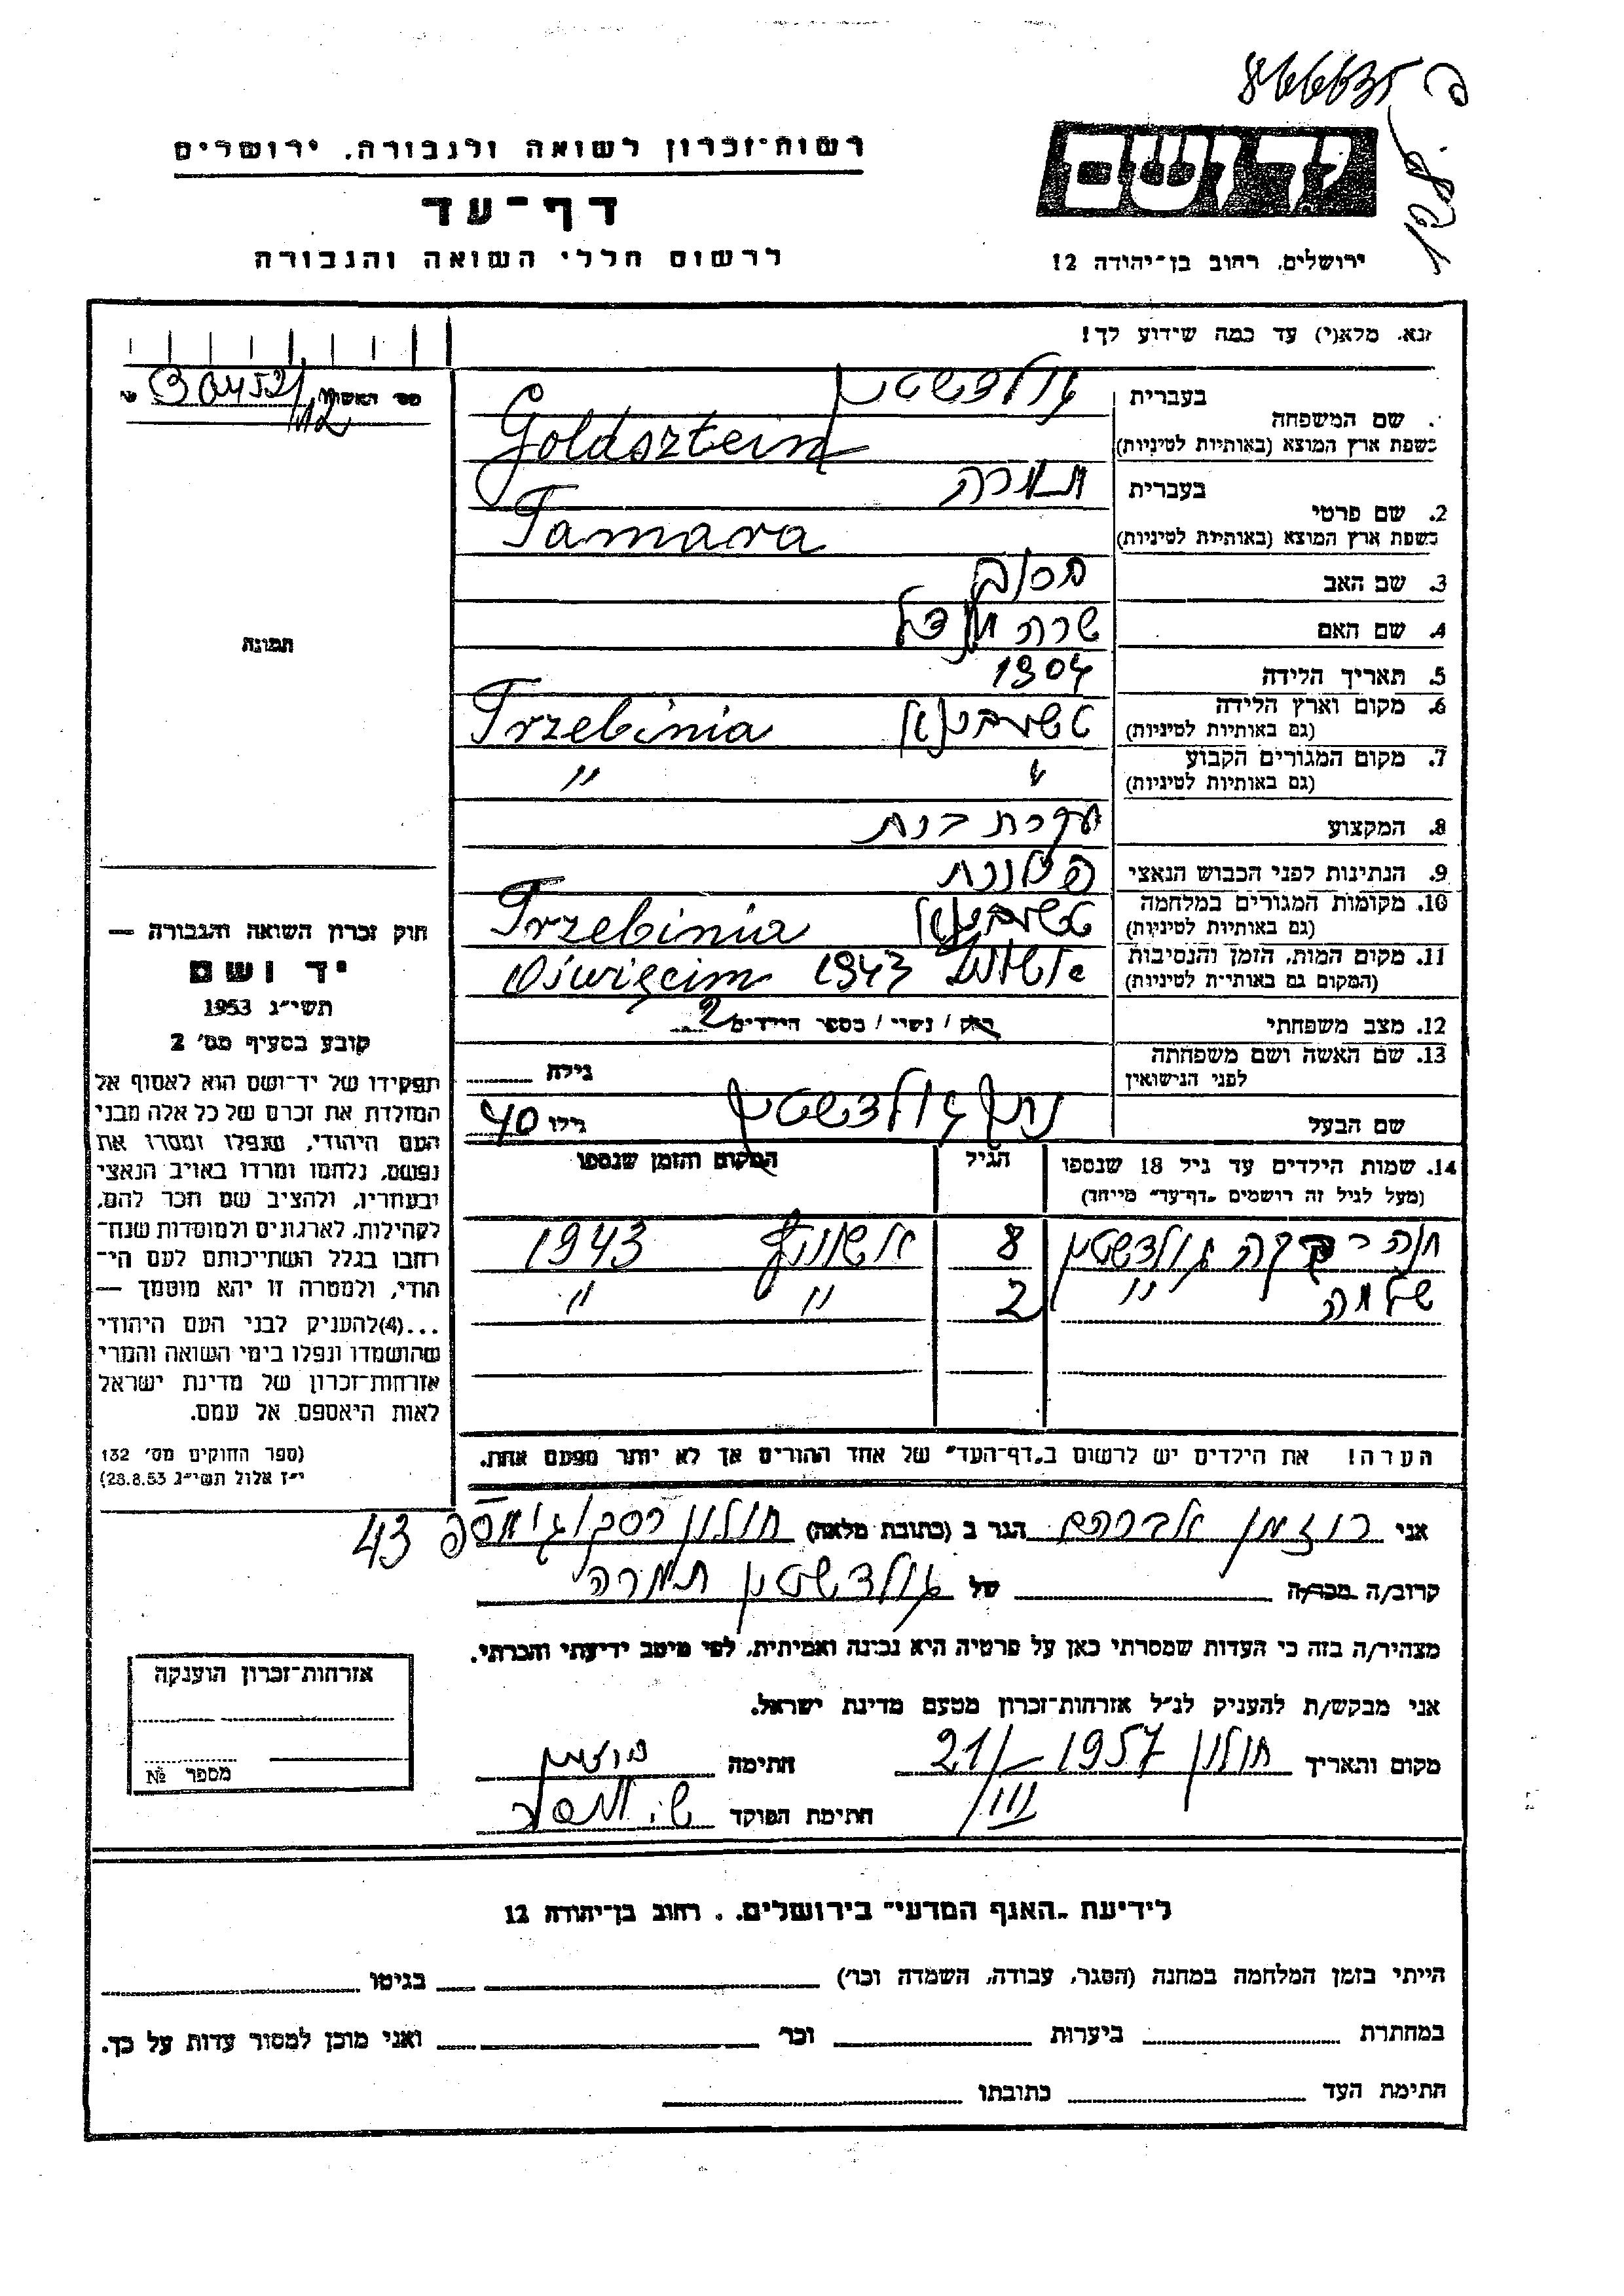 866635
128
רשות־זכרון לשואה ולגבורה, ירושלים
יד ושם
דף־עד
לרשום חללי השואה והגבורה
ירושלים, רחוב בן־יהודה 12
נא, מלא(י) עד כמה שידוע לך!
בעברית גולדשטיין
שם המשפחה
בשפת ארץ המוצא (באותיות לטיניות) Goldsztein
בעברית תמרה
2. שם פרטי
בשפת ארץ המוצא (באותיות לטיניות) Tamara
3. שם האב
4. שם האם שרה
5. תאריך הלידה 1904
6. מקום וארץ הלידה Trzebinia
(גם באותיות לטיניות)
7. מקום המגורים הקבוע " "
(גם באותיות לטיניות)
8. המקצוע עקרת בית
9. הנתינות לפני הכבוש הנאצי פולנית
10. מקומות המגורים במלחמה Trzebinia
(גם באותיות לטיניות)
11. מקום המות, הזמן והנסיבות 1943 Oświęcim
(המקום גם באותיות לטיניות)
12. מצב משפחתי רוק / נשוי / מספר הילדים 2
13. שם האשה ושם משפחתה
לפני הנישואין גילה
שם הבעל נתן גולדשטיין גילו 40
14. שמות הילדים עד גיל 18 שנספו הגיל המקום והזמן שנספו
(מעל לגיל זה רושמים "דף־עד" מיוחד)
חנה רבקה גולדשטיין 8 1943
שלמה " 2 " "
הערה! את הילדים יש לרשום ב"דף־העד" של אחד ההורים אך לא יותר מפעם אחת.
תמונה
חוק זכרון השואה והגבורה —
יד ושם
תשי"ג 1953
קובע בסעיף מס' 2
תפקידו של יד־ושם הוא לאסוף אל
המולדת את זכרם של כל אלה מבני
העם היהודי, שנפלו ומסרו את
נפשם, נלחמו ומרדו באויב הנאצי
ובעוזריו, ולהציב שם וזכר להם,
לקהילות, לארגונים ולמוסדות שנח־
רבו בגלל השתייכותם לעם הי־
הודי, ולמטרה זו יהא מוסמך —
...(4)להעניק לבני העם היהודי
שהושמדו ונפלו בימי השואה והמרי
אזרחות־זכרון של מדינת ישראל
לאות היאספם אל עמם.
(ספר החוקים מס' 132
י"ז אלול תשי"ג 28.8.53)
אני רוזמן אברהם הגר ב (כתובת מלאה) חולון 43
קרוב/ה מכר/ה של גולדשטיין תמרה
מצהיר/ה בזה כי העדות שמסרתי כאן על פרטיה היא נכונה ואמיתית, לפי מיטב ידיעתי והכרתי.
אני מבקש/ת להעניק לנ"ל אזרחות־זכרון מטעם מדינת ישראל.
מקום ותאריך חולון 21/III 1957 חתימה רוזמן
חתימת הפוקד
אזרחות־זכרון הוענקה
מספר №
לידיעת "האגף המדעי" בירושלים, רחוב בן־יהודה 12
הייתי בזמן המלחמה במחנה (הסגר, עבודה, השמדה וכו') בגיטו
במחתרת ביערות וכו' ואני מוכן למסור עדות על כך.
חתימת העד כתובתו